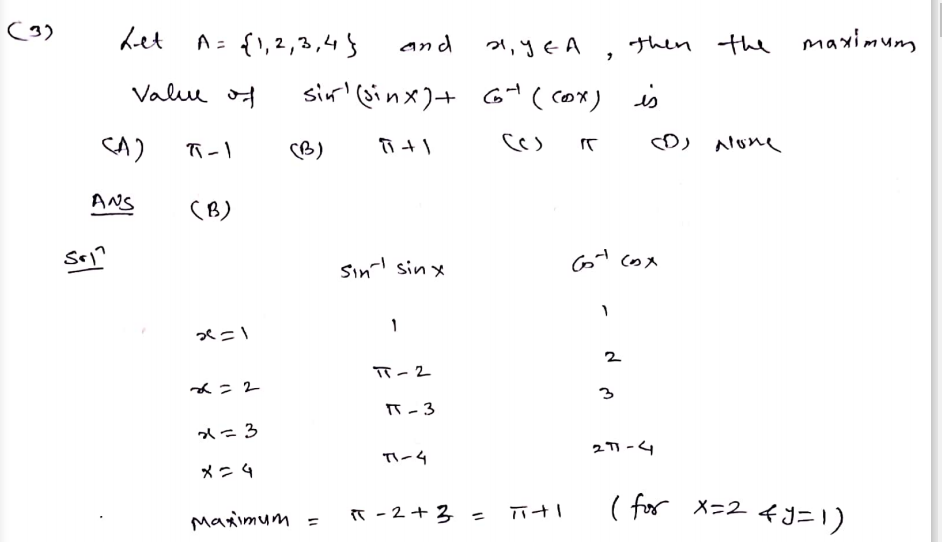 (3) Let A = {1,2,3,4} and x, y ∈ A, then the maximum
Value of sin⁻¹(sinx) + cos⁻¹(cosx) is
(A) π-1 (B) π+1 (C) π (D) None
ANS (B)
Solⁿ
sin⁻¹ sin x cos⁻¹ cos x
x=1 1 1
x=2 π-2 2
x=3 π-3 3
x=4 π-4 2π-4
Maximum = π-2+3 = π+1 (for x=2 & y=1)